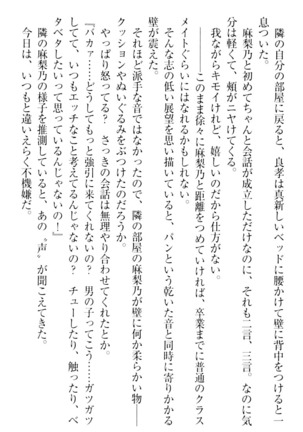 隣の自分の部屋に戻ると、良孝は真新しいベッドに腰かけて壁に手をつけると一
息ついた。
麻梨乃と初めてちゃんと会話が成立しただけなのに、それも二言、三言。なのに気
分は軽くて、頬がニヤけてくる。
我ながらキモイけれど、嬉しいのだから仕方がない。
――このまま徐々に麻梨乃と距離をつめていければ、卒業までに普通のクラス
メイトぐらいにはなれるかもしれない。
そんな志の低い展望を思い描いていると、バンという乾いた音と同時に寄りかかり
壁が震えた。
それほど派手な音ではなかったので、隣の部屋の麻梨乃が壁に何か柔らかい物――
クッションやぬいぐるみをぶつけたのだろうか。
やっぱり怒ってる？　さっきの会話は無理やり合わせてくれたとか。
『バカァ……どうしてもっと強引に来てくれないの？　男の子ってこう……ガツガツ
してて、いつもエッチなこと考えてるんじゃないの？　チューしたり、触ったり、ベ
タベタしたいって思っているんじゃないの！』
隣の麻梨乃の様子を推測していると、あの〝声〟が聞こえてきた。
今日は、いつもと違いえらく不機嫌だ。